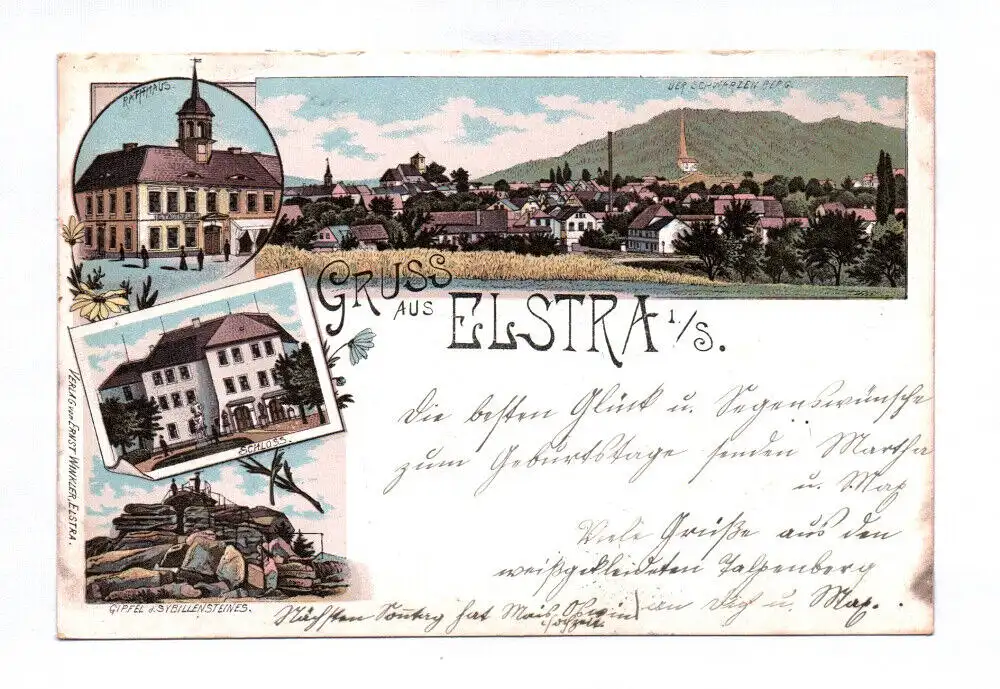 RATHHAUS.
DER SCHWARZENBERG.
GRUSS
AUS
ELSTRA I./S.
SCHLOSS.
VERLAG VON ERNST WINKLER, ELSTRA.
GIPFEL d. SYBILLENSTEINES.
Die besten Glück u. Segenswünsche
zum Geburtstage senden Martha
u. Max
Viele Grüße aus den
weißgekleideten
an Dich u. Max.
Nächsten Sonntag hat
Hochzeit.